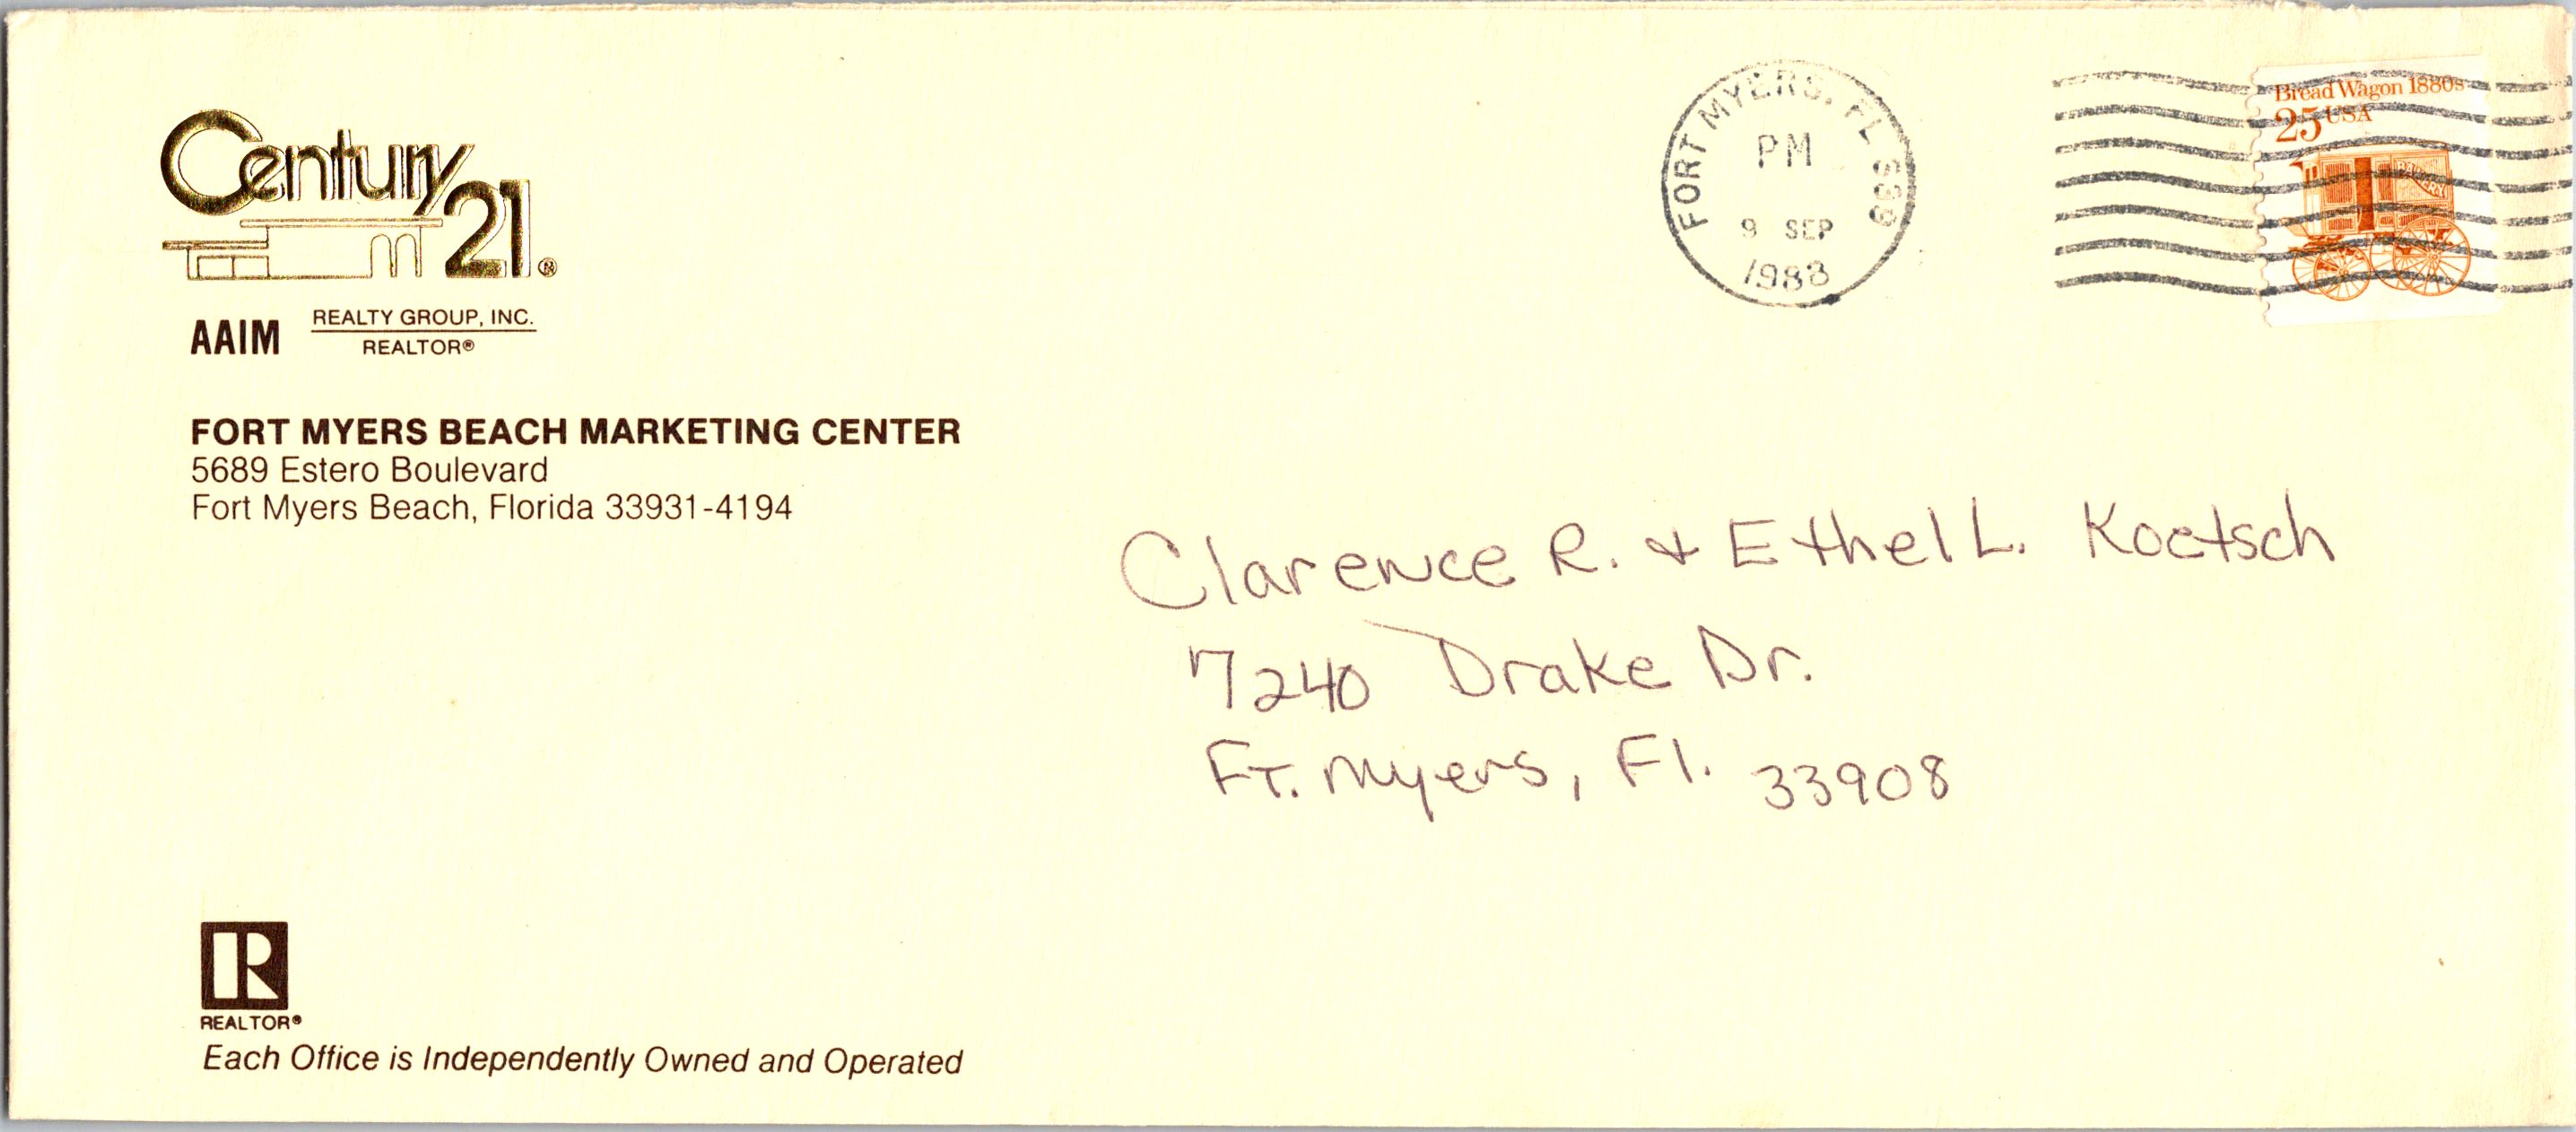 Century 21®
AAIM REALTY GROUP, INC.
REALTOR®
FORT MYERS BEACH MARKETING CENTER
5689 Estero Boulevard
Fort Myers Beach, Florida 33931-4194
FORT MYERS, FL 339
PM
9 SEP
1988
Bread Wagon 1880s
25 USA
BAKERY
Clarence R. & Ethel L. Koetsch
7240 Drake Dr.
Ft. Myers, Fl. 33908
R
REALTOR®
Each Office is Independently Owned and Operated